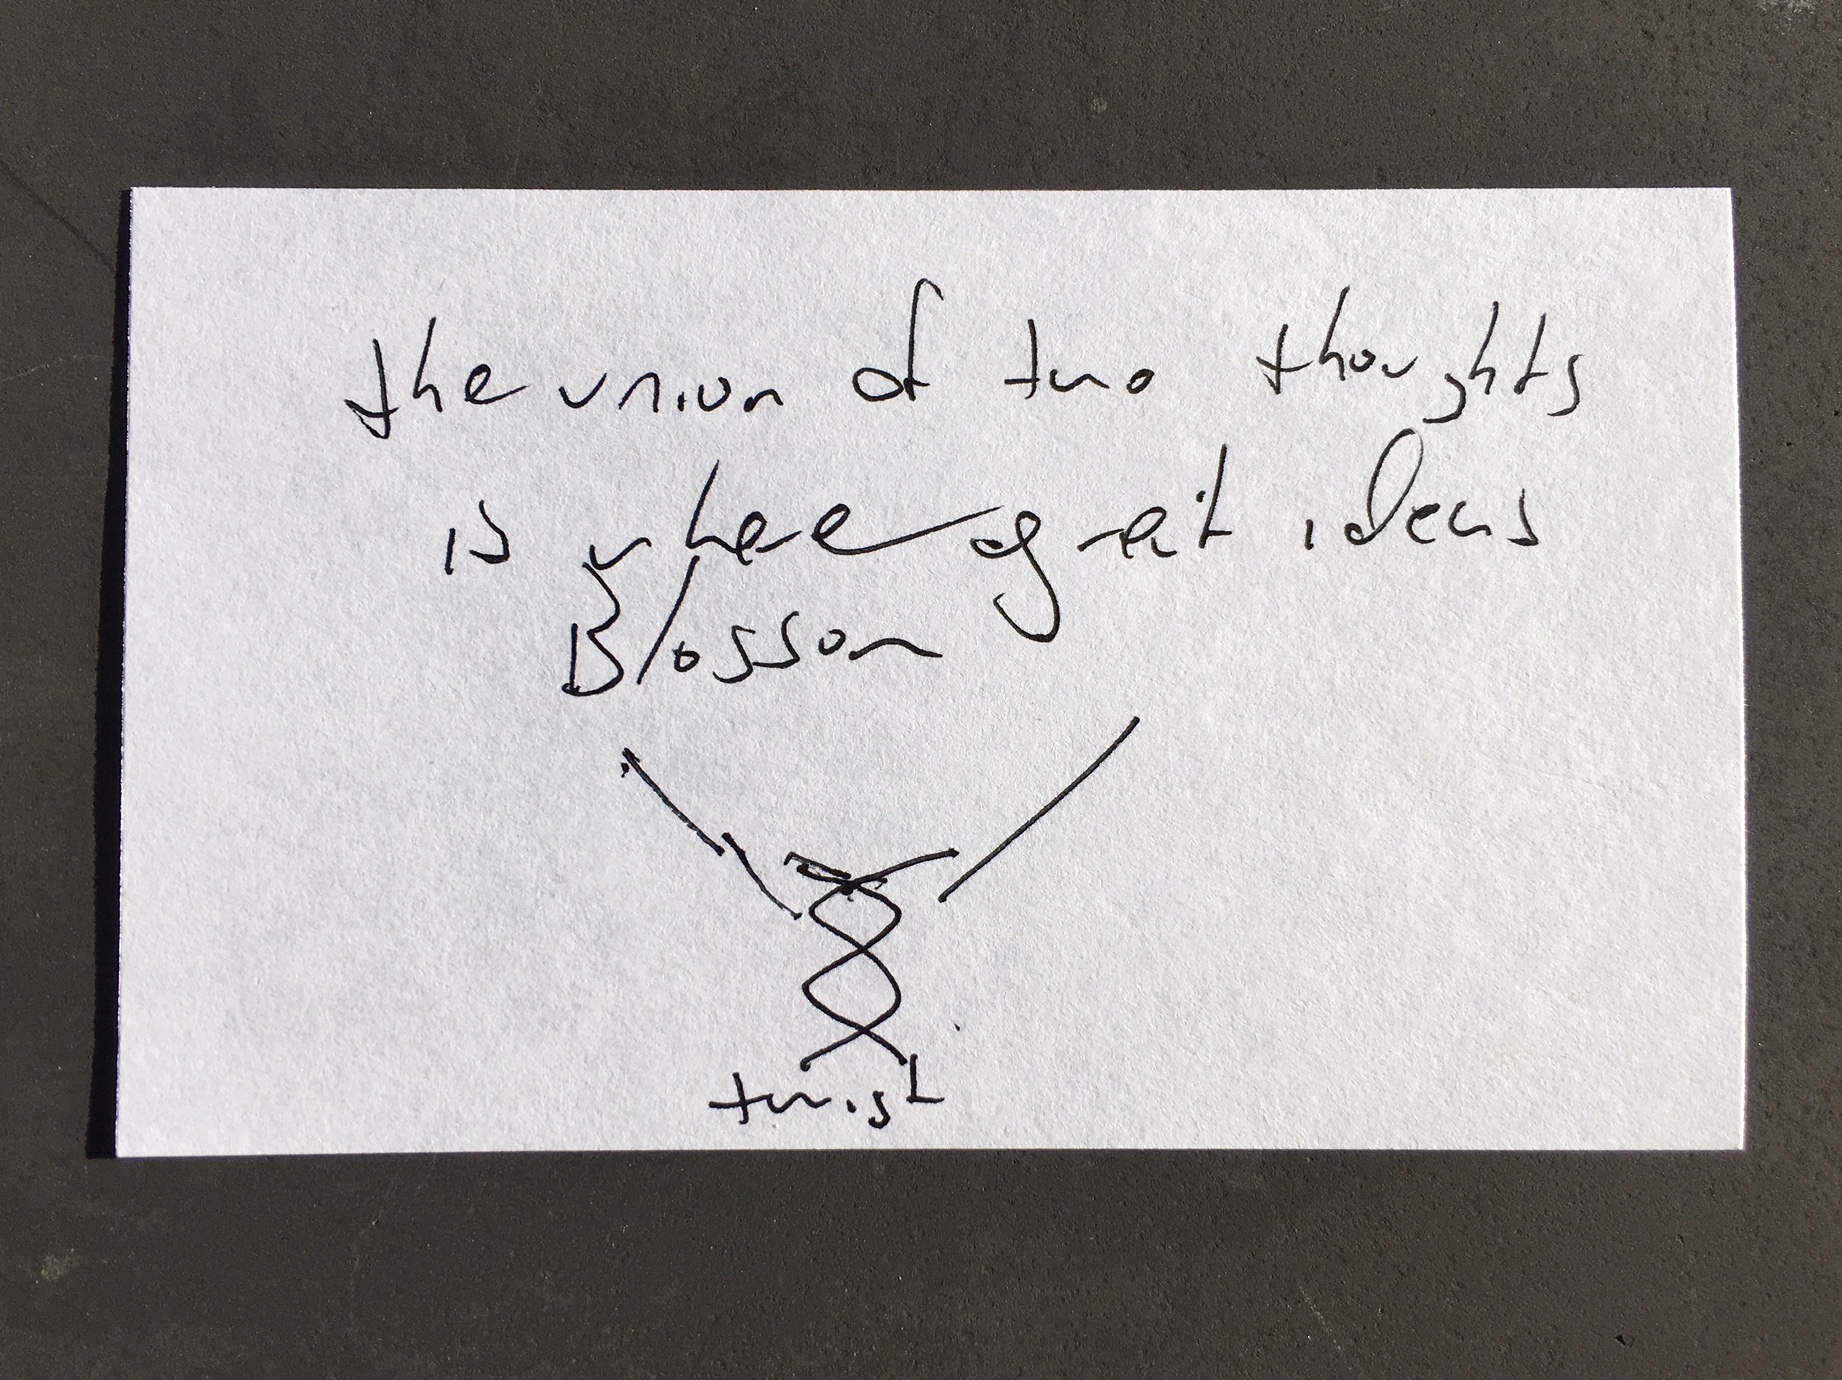 the union of two thoughts
is where great ideas
Blossom
twist